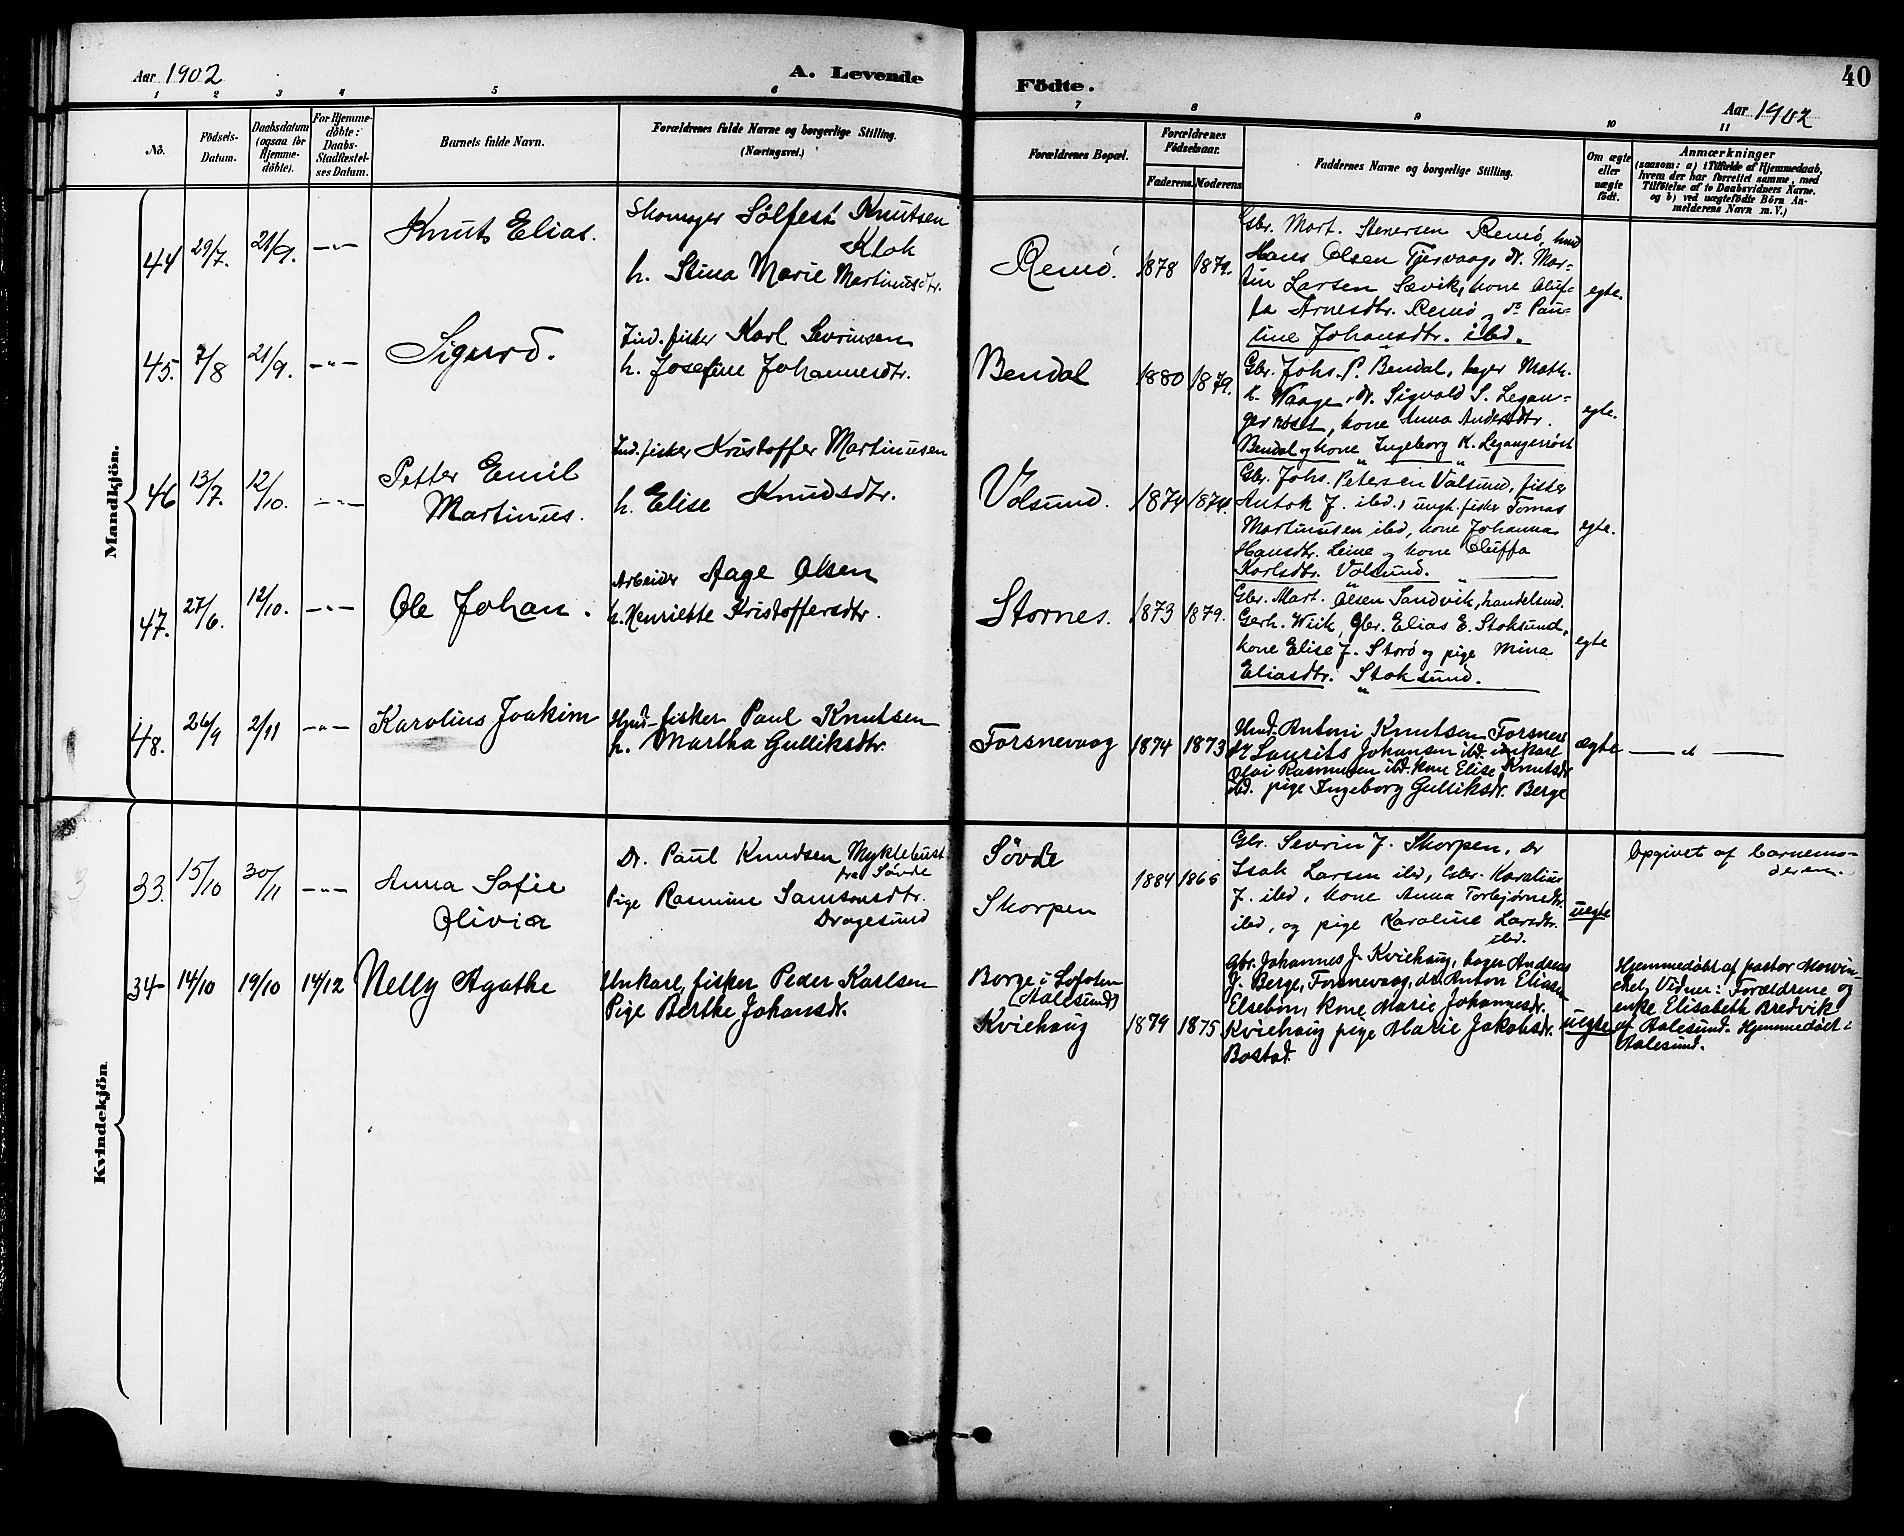 Aar 1902
A. Levende
Födte.
40
Aar 1902
1 2 3 4 5 6 7 8 9 10 11
No.
Födsels-
Datum.
Daabsdatum
(ogsaa for
Hjemme-
døbte).
For Hjemme-
døbte:
Daabs-
Stadfæstel-
ses Datum.
Barnets fulde Navn.
Forældrenes fulde Navne og borgerlige Stilling.
(Næringsvei.)
Forældrenes Bopæl.
Forældrenes
Födselsaar.
Faderens.
Moderens.
Faddernes Navne og borgerlige Stilling.
Om ægte
eller
uægte
født.
Anmærkninger
(saasom: a) i Tilfælde af Hjemmedaab,
hvem der har forrettet samme, med
Tilföielse af to Daabsvidners Navne,
og b) ved uægtefödte Börn An-
melderens Navn m. V.)
Mandkjön.
44 29/7. 21/9. -"-
Knut Elias.
Skomager Sølfest Knutsen
Klok
h. Stina Marie Martinusdtr.
Remö. 1878 1879.
Gbr. Mart. Stenersen Remö, hmd
Hans Olsen Tjervaag, dr. Mar-
tin Larsen Sævik, kone Oluf-
fa Arnesdtr. Remö og do Pau-
line Johansdtr. ibd.
egte.
45. 7/8 21/9. -"-
Sigurd.
Ind. fisker Karl Sevrinsen
h. Josefine Johannesdtr.
Bendal 1880 1879.
Gbr. Johs. P. Bendal, bager Math.
K. Waage, dr. Sigvald S. Legan-
gerröset, kone Anna Andersdtr.
Bendal og kone Ingeborg K. Legangerröst
egte.
46 13/7. 12/10. -"-
Petter Emil
Martinus.
Ind. fisker Kristoffer Martinusen
h. Elise Knudsdtr.
Volsund. 1874 1874.
Gbr. Johs. Petersen Volsund, fisker
Antok J. ibd., ungk. fisker Tomas
Martinusen ibd, kone Johanna
Hansdtr. Leine og kone Oluffa
Karlsdtr. Volsund.
egte.
47. 27/6. 12/10. -"-
Ole Johan.
Arbeider Aage Olsen
h. Henriette Kristoffersdtr.
Stornes. 1873 1879.
Gbr. Mart. Olsen Sandvik, handelsmd.
Gerh. Wiik, Gbr. Elias E. Stoksund,
kone Elise J. Storö og pige Mina
Eliasdtr. Stoksund.
egte
48. 26/9 2/11 -"-
Karolius Joakim
Hmd. fisker Paul Knutsen
h. Martha Gulliksdtr.
Forsnevaag 1874 1873
Hmd. Antoni Knutsen Forsnev
dr Laurits Johansen ibd. unkarl
Olai Rasmussen ibd. kone Elise Knutsdr
ibd. pige Ingeborg Gulliksdr. Berge
ægte
— " —
Kvindekjön.
33. 15/10 30/11 -"-
Anna Sofie
Olivia
Dr. Paul Knudsen Myklebust
fra Søvde
Pige Rasmine Samsonsdtr.
Dragesund
Søvde
Skorpen
1884 1865
Gbr. Severin J. Skorpen, dr
Isak Larsen ibd, Gbr. Karolius
J. ibd, kone Anna Torbjørnsdtr.
ibd, og pige Karoline Larsdtr.
ibd.
uegte
Opgivet af barnemo-
deren.
34 14/10 19/10 14/12
Nelly Agathe
Unkarl, fisker Peder Karlsen
Pige Berthe Johansdr.
Borge i Lofoten
(Aalesund)
Kviehaug 1879 1875
Gbr. Johannes J. Kviehaug, bager Andreas
J. Berge, Forsnevaag, dr. Anton Eliasen
Elsebøn, kone Marie Johannesdr.
Kviehaug pige Marie Jakobsdr.
Bostad.
uegte
Hjemmedøbt af pastor Morvin-
kel, Vidner: Forældrene og
enke Elisabeth Bredvik
af Aalesund. Hjemmedøbt i
Aalesund.